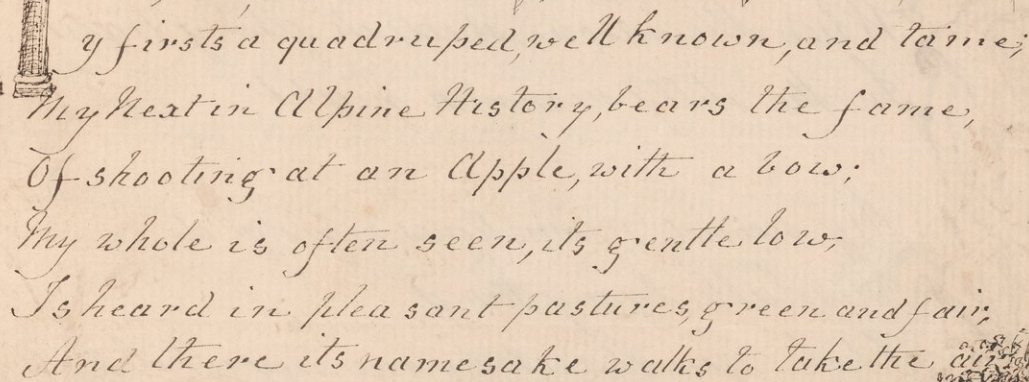 y firsts a quadruped, well known, and tame;
My Next in Alpine History, bears the fame,
Of shooting at an Apple, with a bow;
My whole is often seen, its gentle low,
Is heard in pleasant pastures, green and fair,
And there its namesake walks to take the air